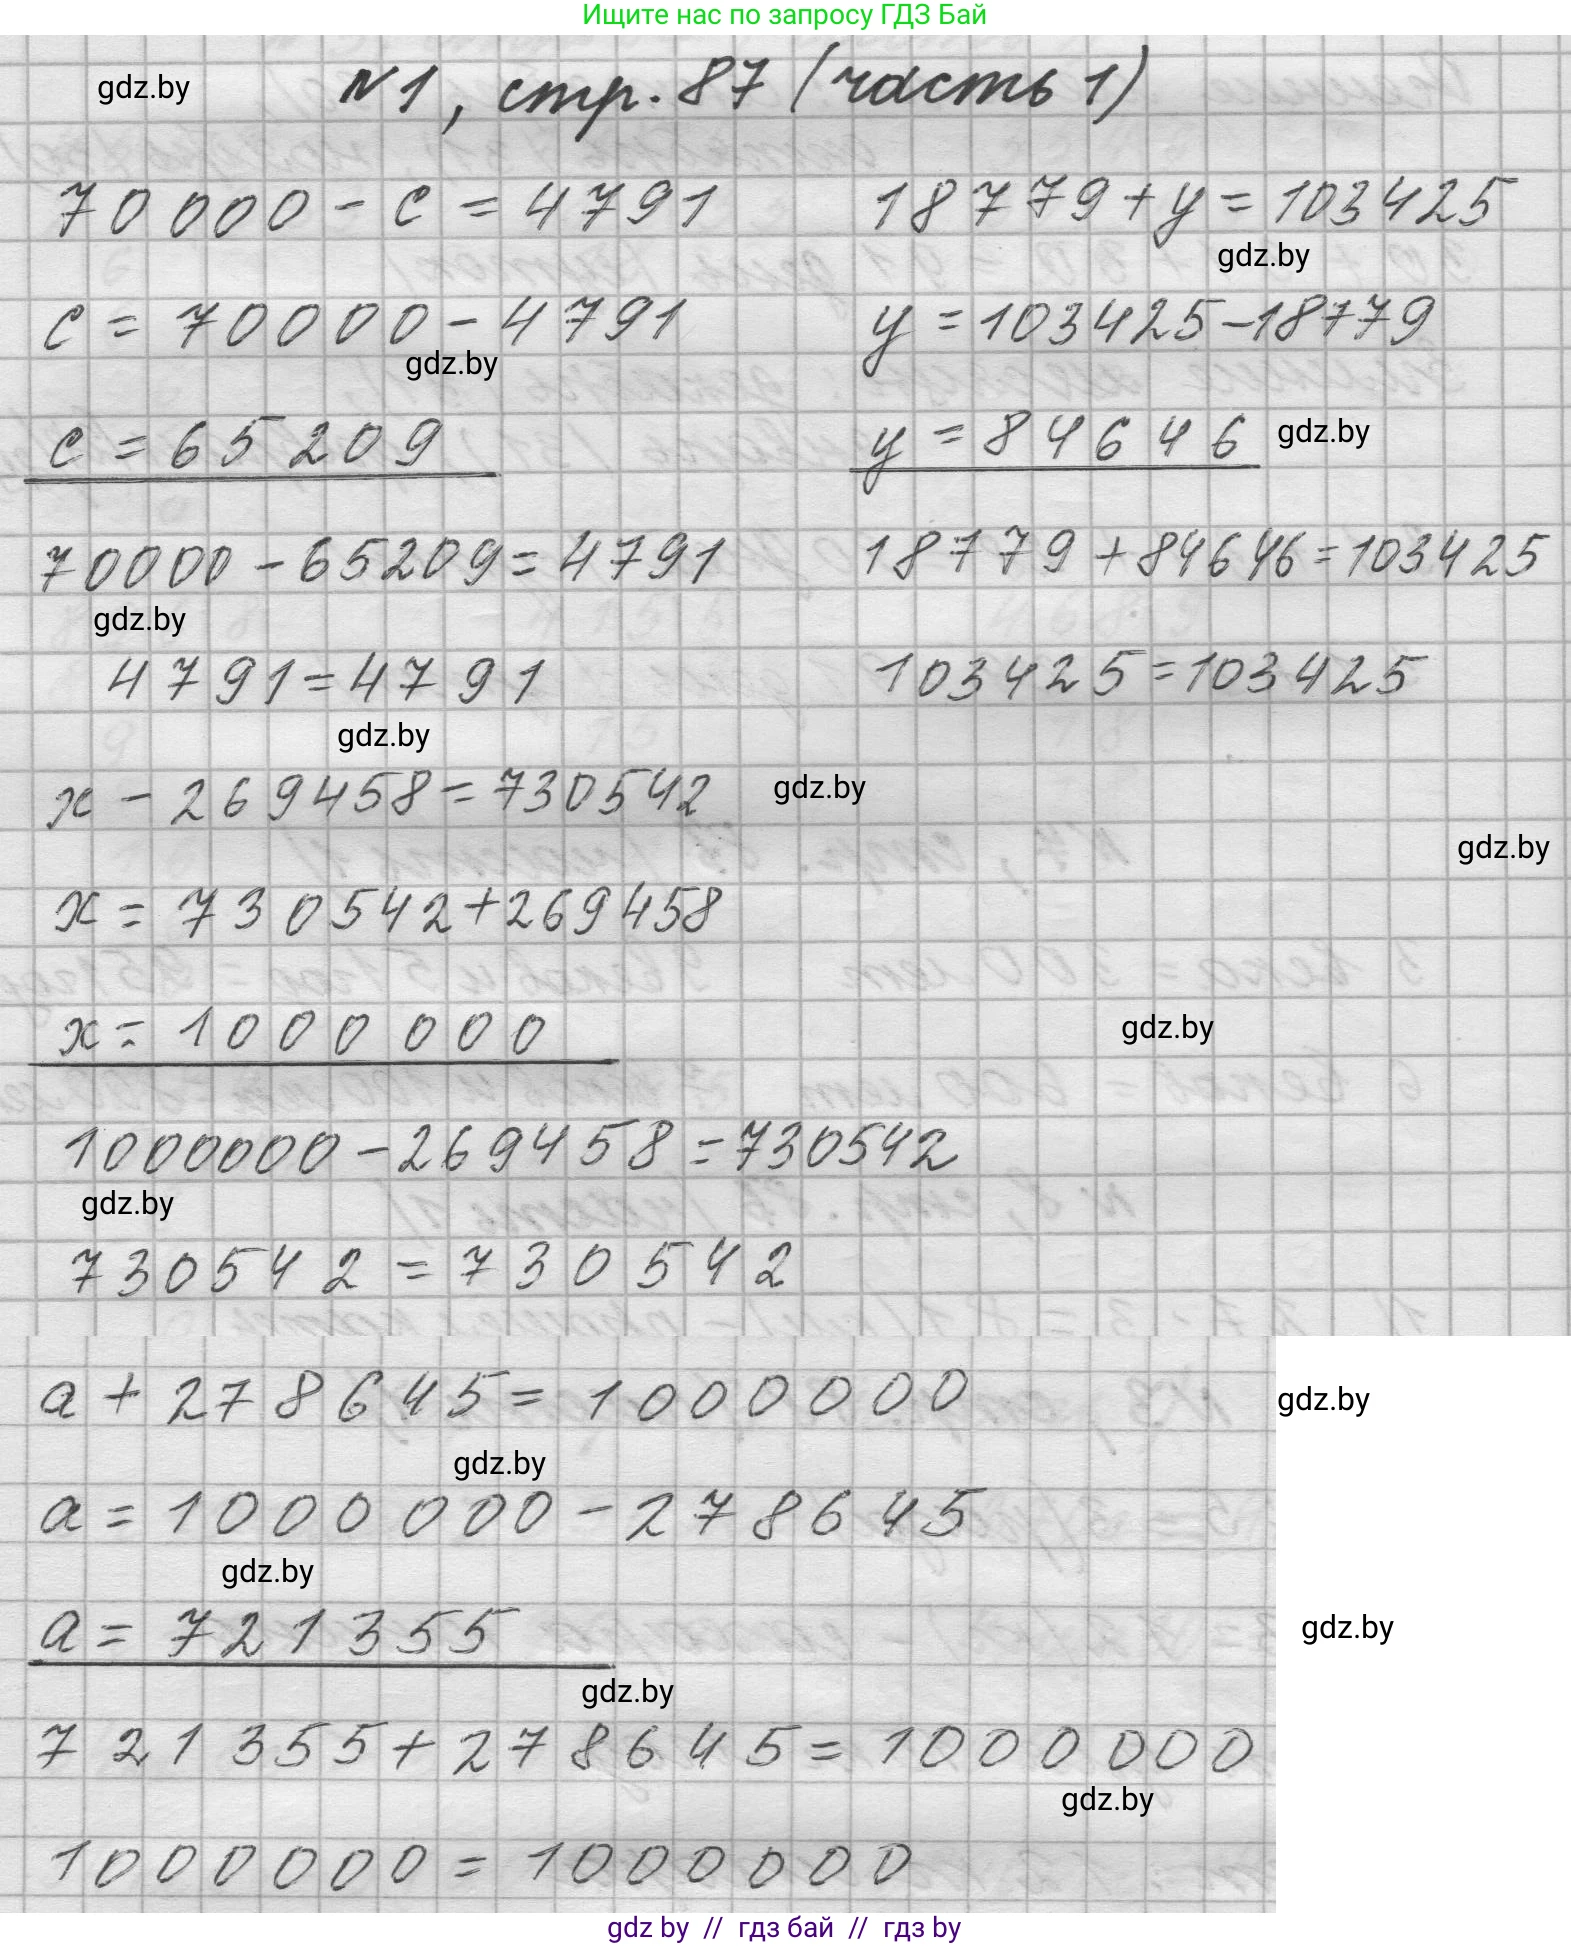 Ищите нас по запросу ГДЗ Бай
gdz.by
№1, стр. 87 (часть 1)
70 000 - с = 4791
18779 + у = 103425
gdz.by
с = 70000 - 4791
у = 103425 - 18779
gdz.by
с = 65209
у = 84646
gdz.by
70000 - 65209 = 4791
18779 + 84646 = 103425
gdz.by
4791 = 4791
103425 = 103425
gdz.by
х - 269458 = 730542
gdz.by
gdz.by
х = 730542 + 269458
х = 1000 000
gdz.by
1000000 - 269458 = 730542
gdz.by
730542 = 730542
а + 278645 = 1000000
gdz.by
gdz.by
а = 1000 000 - 278645
gdz.by
а = 721355
gdz.by
gdz.by
721355 + 278645 = 1000 000
gdz.by
1000000 = 1000000
gdz by // гдз бай // гдз by